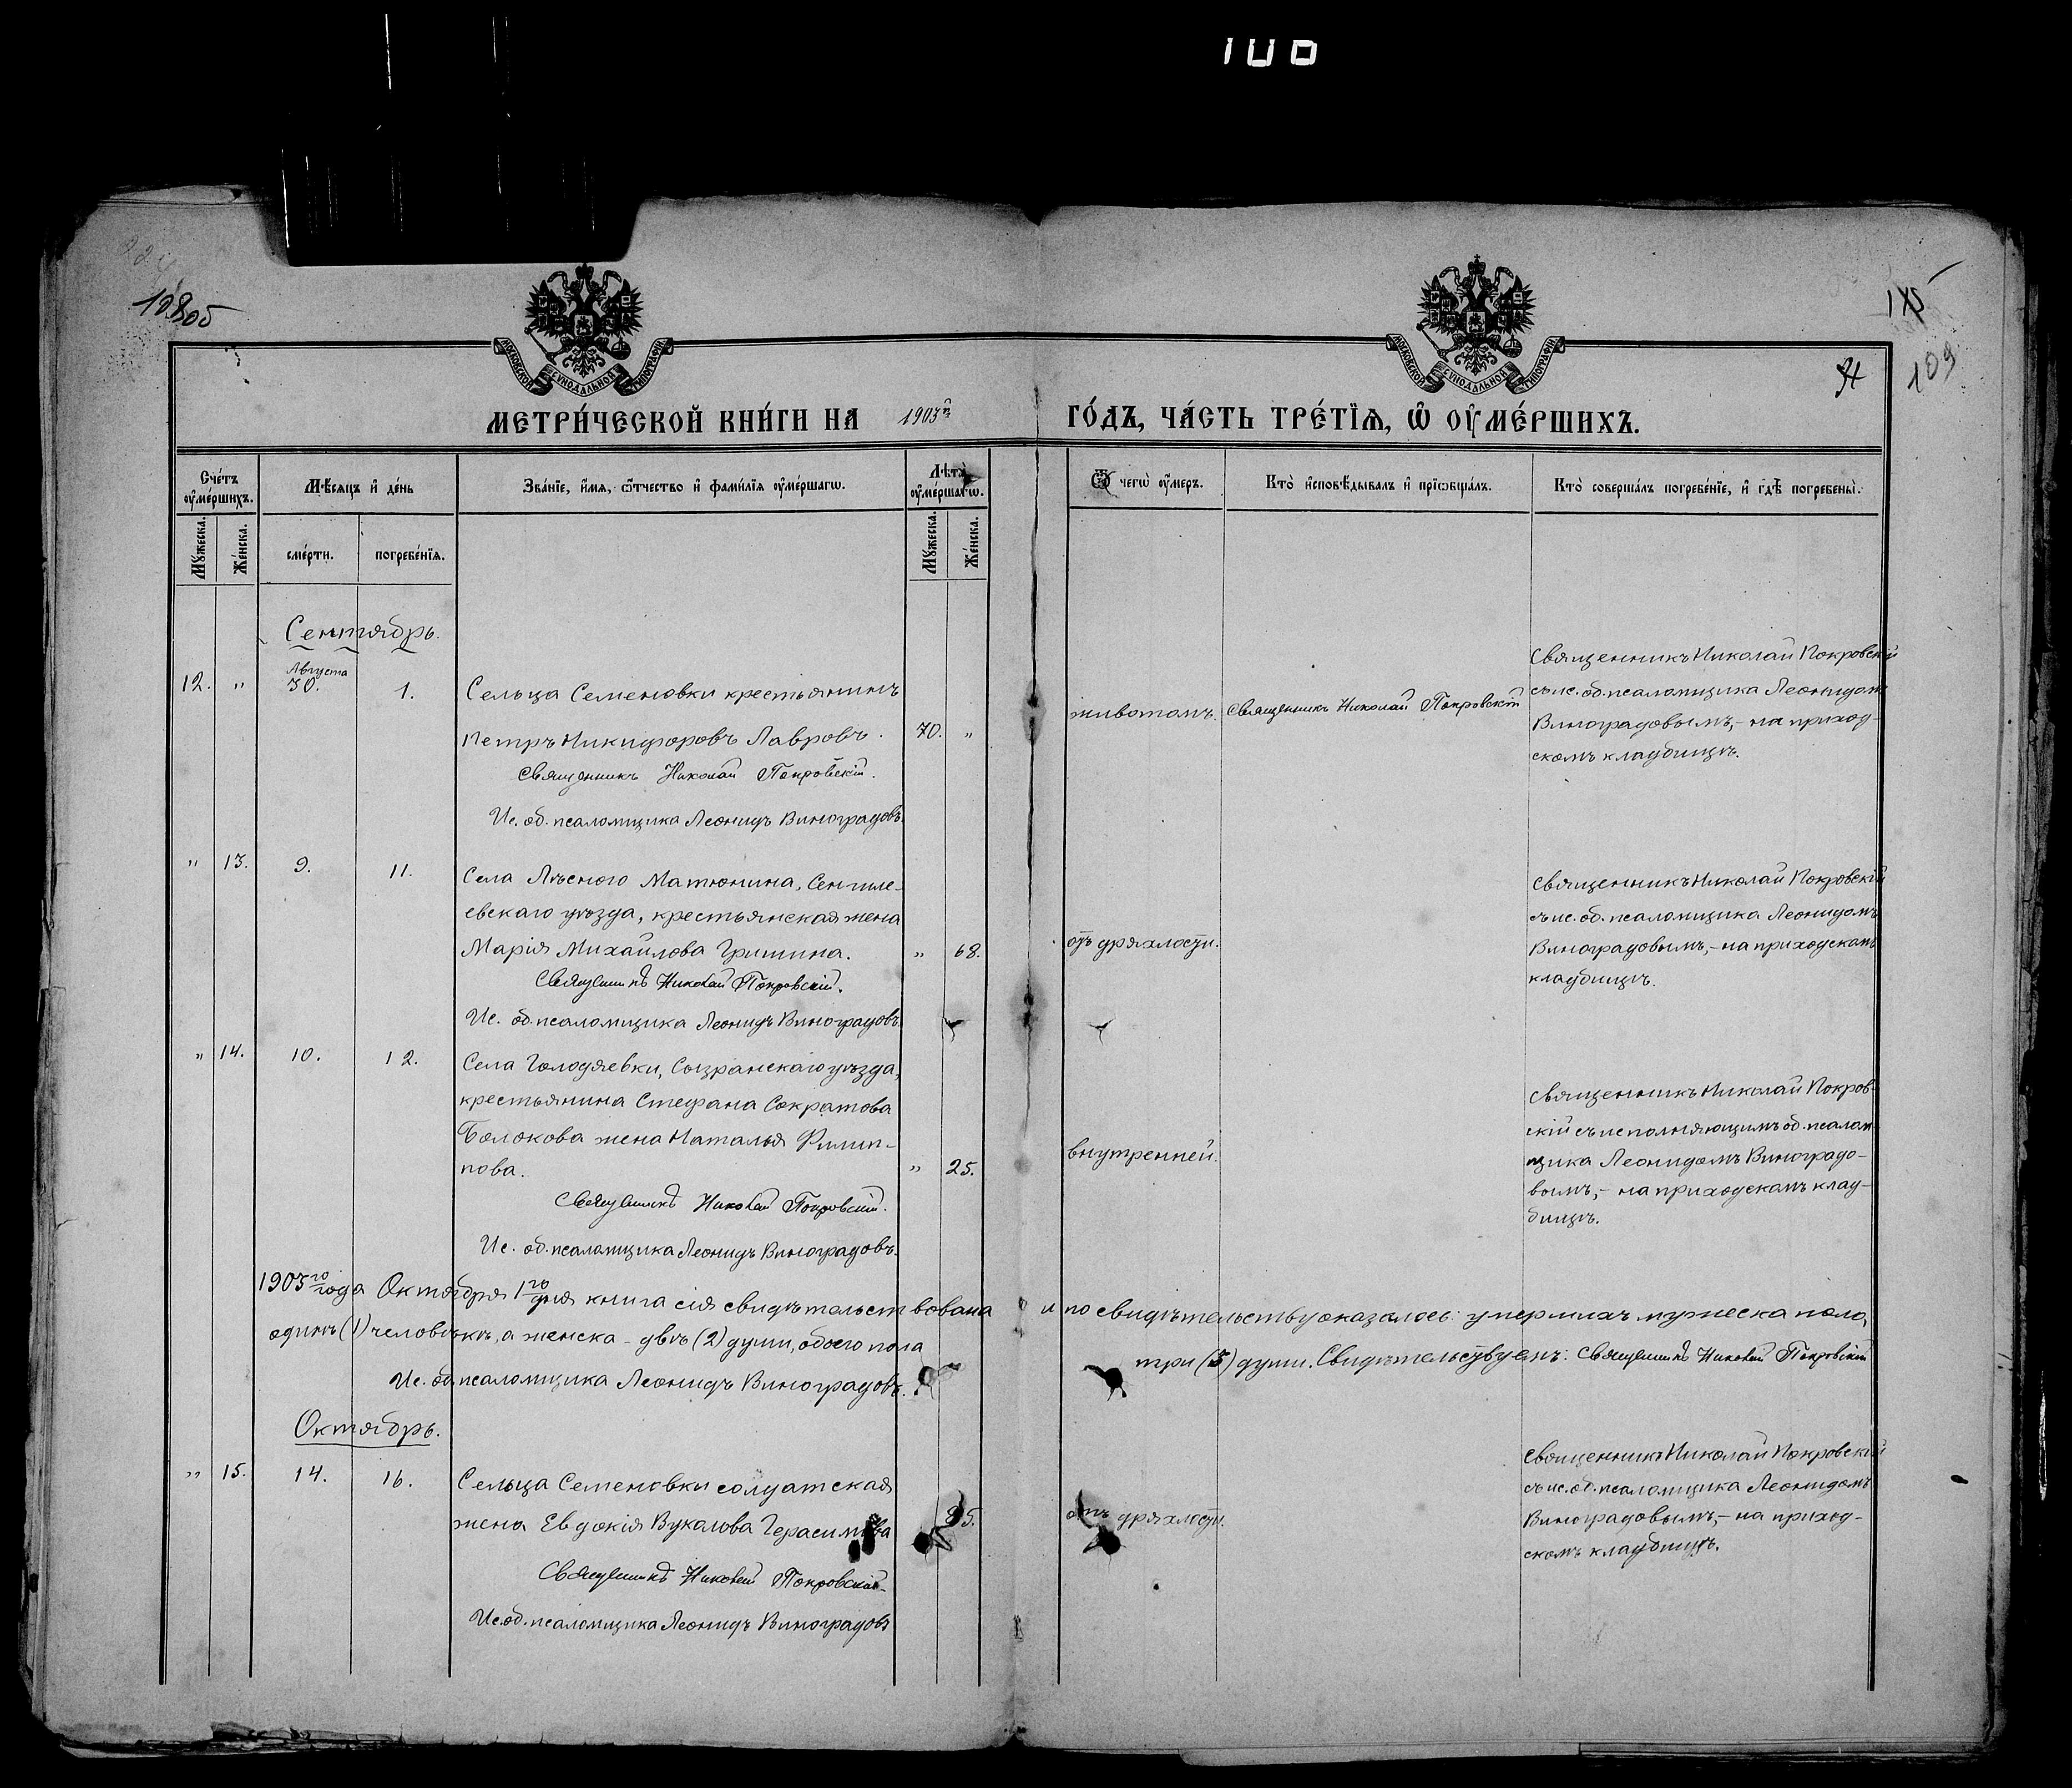 108об
109
МЕТРИ́ЧЕСКОЙ КНИ́ГИ НА 1903й ГО́ДЪ, ЧА́СТЬ ТРЕ́ТЇѦ, Ѡ ОУМЕ́РШИХЪ.
Сче́тъ оуме́ршихъ.
Мѣ́сѧцъ и де́нь
Зва́нїе, и́мѧ, ѻ́тчество и фами́лїѧ оуме́ршагѡ.
Лѣта̀ оуме́ршагѡ.
Ѿ чегѡ̀ оу́меръ.
Кто̀ и҆сповѣ́дывалъ и҆ прїѡбща́лъ.
Кто̀ соверша́лъ погребе́нїе, и҆ гдѣ̀ погребены̀.
Мꙋ́жеска.
Же́нска.
сме́рти.
погребе́нїѧ.
Мꙋ́жеска.
Же́нска.
Сентябрь.
12. " Августа 30. 1. Сельца Семеновки крестьянинъ
Петръ Никифоровъ Лавровъ. 70. "
Священникъ Николай Покровскій.
Ис. об. псаломщика Леонидъ Виноградовъ.
животомъ.
Священникъ Николай Покровскій
Священникъ Николай Покровскій
съ ис. об. псаломщика Леонидомъ
Виноградовымъ,- на приход-
скомъ кладбищѣ.
" 13. 9. 11. Села Лѣсного Матюнина, Сенгиле-
евскаго уѣзда, крестьянская жена
Марія Михайлова Гришина. " 68.
Священникъ Николай Покровскій.
Ис. об. псаломщика Леонидъ Виноградовъ.
отъ дряхлости.
Священникъ Николай Покровскій
съ ис. об. псаломщика Леонидомъ
Виноградовымъ,- на приходскомъ
кладбищѣ.
" 14. 10. 12. Села Голодяевки, Сызранскаго уѣзда,
крестьянина Стефана Сократова
Болокова жена Наталья Филип-
пова. " 25.
Священникъ Николай Покровскій.
Ис. об. псаломщика Леонидъ Виноградовъ.
внутренней.
Священникъ Николай Покров-
скій съ исполняющимъ об. псалом-
щика Леонидомъ Виноградо-
вымъ,- на приходскомъ клад-
бищѣ.
1903го года Октября 1го дня книга сія свидѣтельствована и по свидѣтельству оказалось: умершихъ мужеска пола,
одинъ (1) человѣкъ, а женска - двѣ (2) души, обоего пола три (3) души. Свидѣтельствуемъ: Священникъ Николай Покровскій
Ис. об. псаломщика Леонидъ Виноградовъ.
Октябрь.
" 15. 14. 16. Сельца Семеновки солдатская
жена Евдокія Вукалова Герасимова 85.
Священникъ Николай Покровскій.
Ис. об. псаломщика Леонидъ Виноградовъ
отъ дряхлости.
Священникъ Николай Покровскій
съ ис. об. псаломщика Леонидомъ
Виноградовымъ,- на приход-
скомъ кладбищѣ.